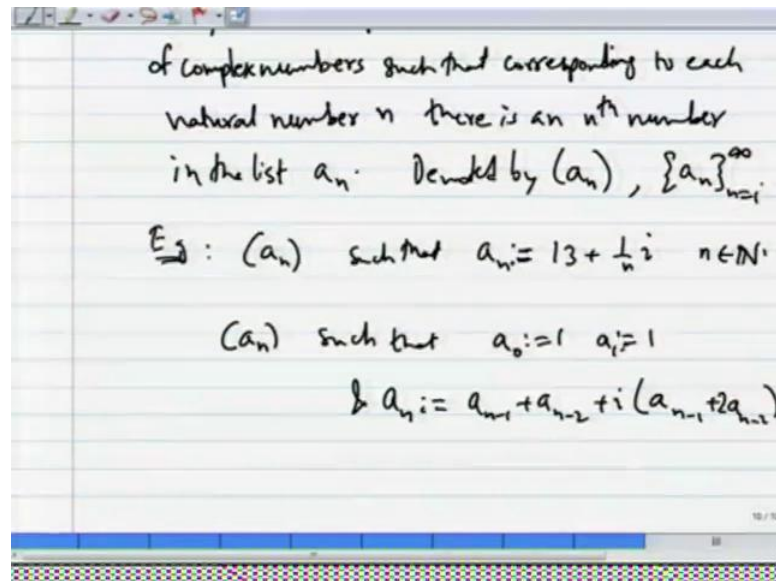 of complex numbers such that corresponding to each
natural number n there is an nth number
in the list aₙ. Denoted by (aₙ), {aₙ}_{n=1}^∞
Eg: (aₙ) such that aₙ := 13 + 1/n i n∈ℕ.
(aₙ) such that a₀ := 1 a₁ := 1
& aₙ := aₙ₋₁ + aₙ₋₂ + i(aₙ₋₁ + 2aₙ₋₂)